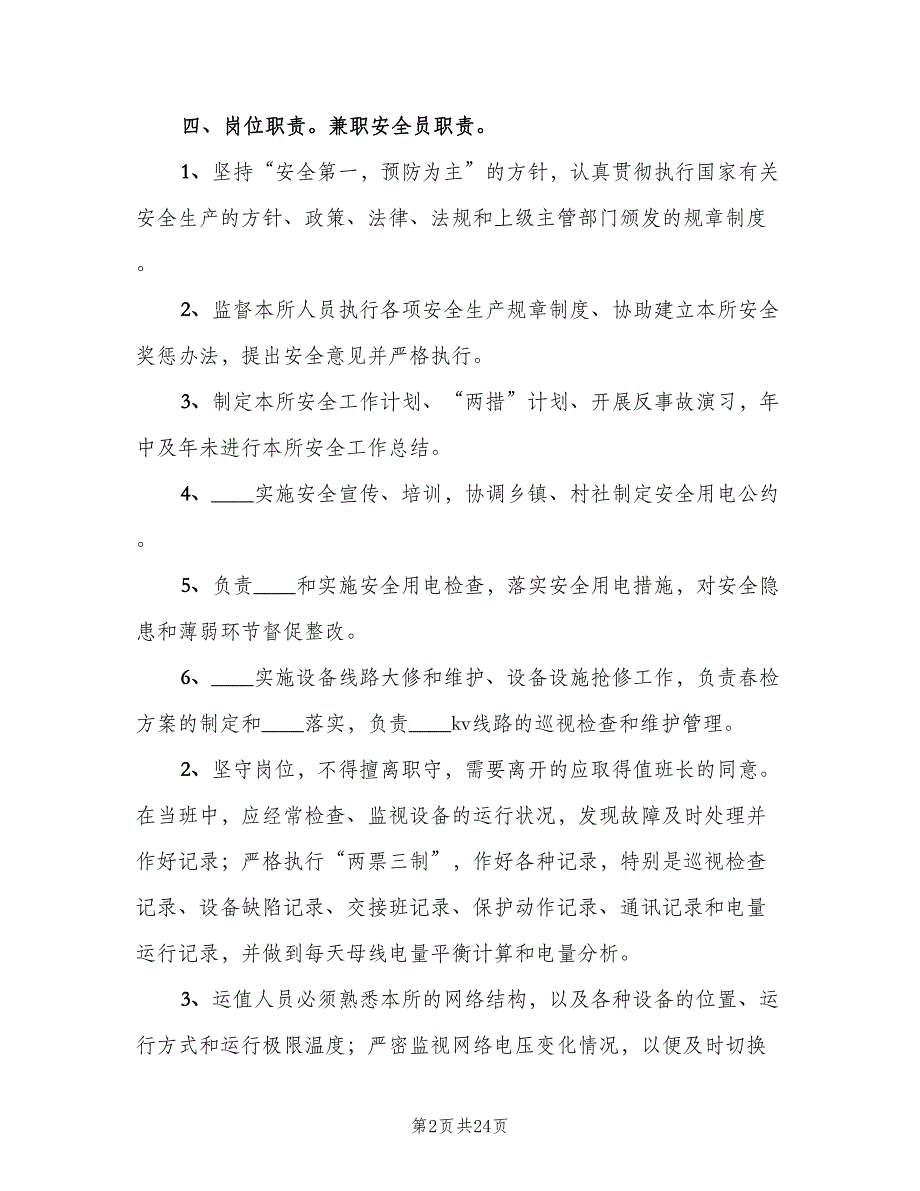 四、岗位职责。兼职安全员职责。
1、坚持“安全第一，预防为主”的方针，认真贯彻执行国家有关
安全生产的方针、政策、法律、法规和上级主管部门颁发的规章制度
。
2、监督本所人员执行各项安全生产规章制度、协助建立本所安全
奖惩办法，提出安全意见并严格执行。
3、制定本所安全工作计划、“两措”计划、开展反事故演习，年
中及年未进行本所安全工作总结。
4、____实施安全宣传、培训，协调乡镇、村社制定安全用电公约
。
5、负责____和实施安全用电检查，落实安全用电措施，对安全隐
患和薄弱环节督促整改。
6、____实施设备线路大修和维护、设备设施抢修工作，负责春检
方案的制定和____落实，负责____kv线路的巡视检查和维护管理。
2、坚守岗位，不得擅离职守，需要离开的应取得值班长的同意。
在当班中，应经常检查、监视设备的运行状况，发现故障及时处理并
作好记录；严格执行“两票三制”，作好各种记录，特别是巡视检查
记录、设备缺陷记录、交接班记录、保护动作记录、通讯记录和电量
运行记录，并做到每天母线电量平衡计算和电量分析。
3、运值人员必须熟悉本所的网络结构，以及各种设备的位置、运
行方式和运行极限温度；严密监视网络电压变化情况，以便及时切换
第2页共24页